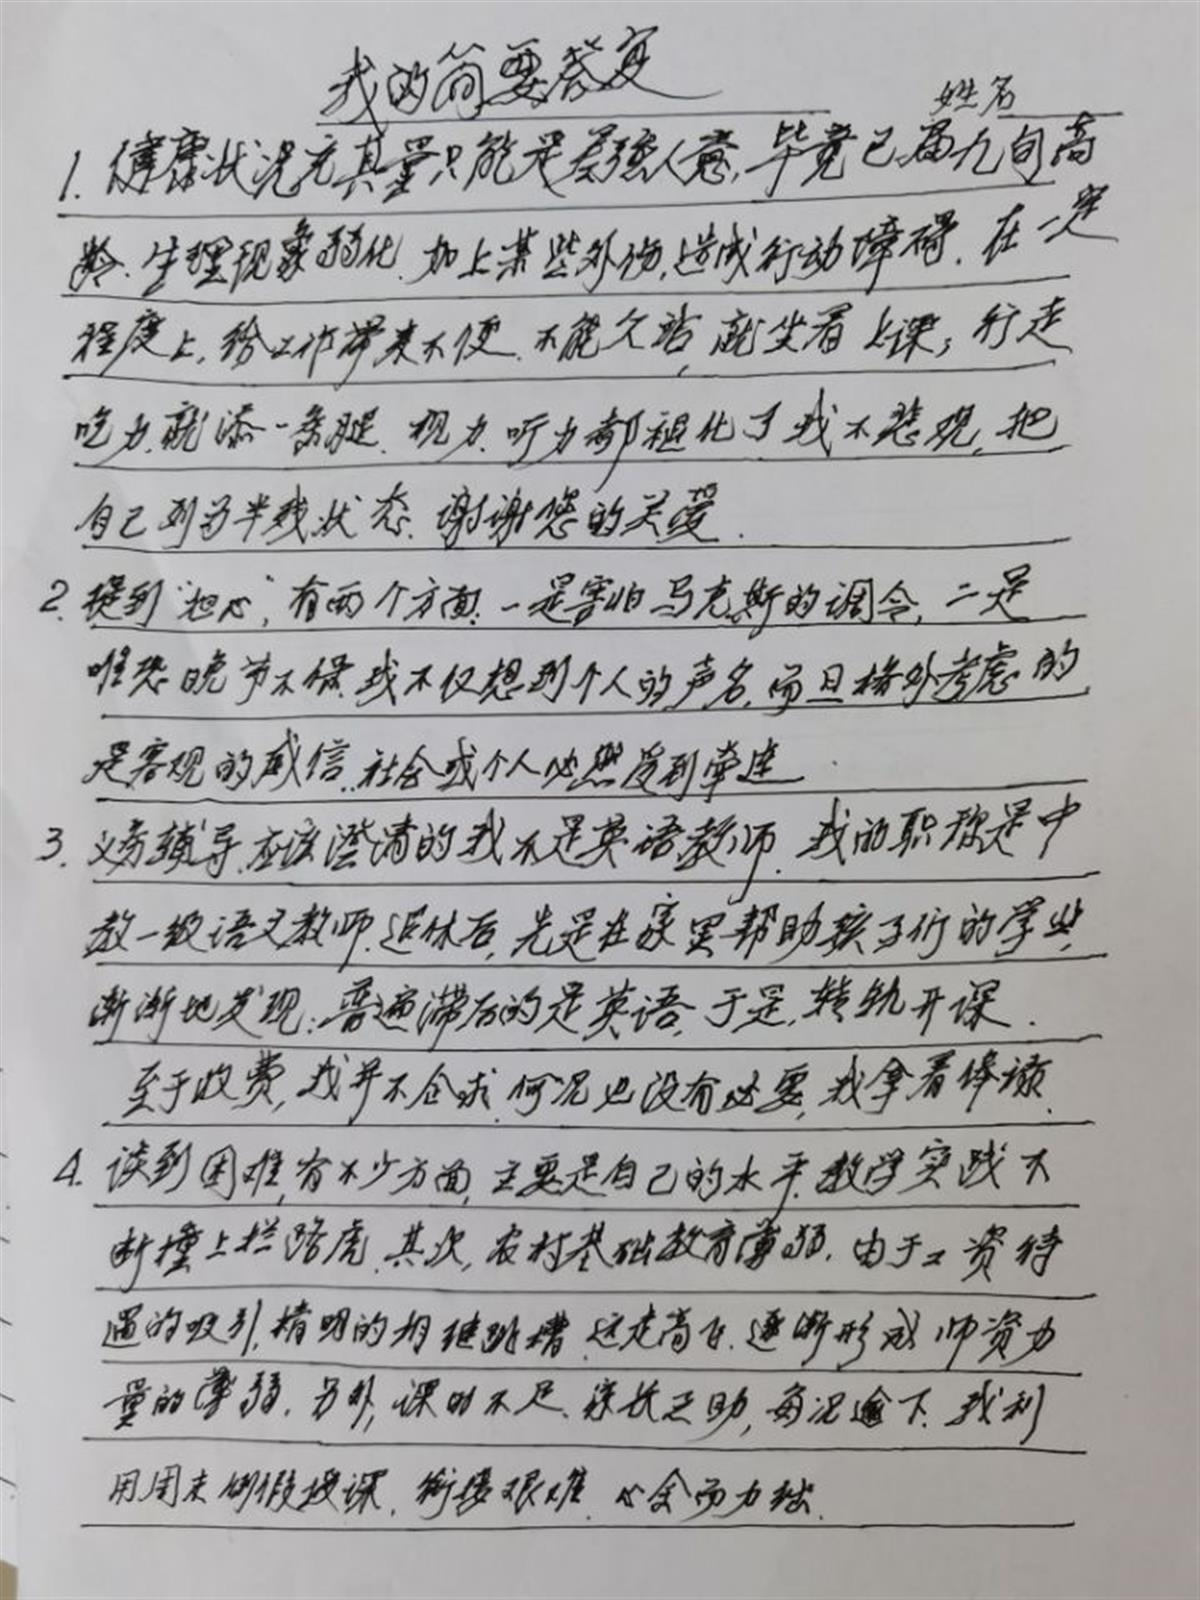 我的简要答复
姓名
1. 健康状况充其量只能是差强人意,毕竟已届九旬高
龄.生理现象弱化.加上某些外伤,造成行动障碍.在一定
程度上,给工作带来不便.不能久站,就坐着上课;行走
吃力,就添一条腿.视力.听力都退化了.我不悲观,把
自己列为半残状态.谢谢您的关爱.
2. 提到“担心”,有两个方面:一是害怕马克斯的调令,二是
唯恐晚节不保.我不仅想到个人的声名,而且格外考虑的
是客观的威信.社会或个人必然受到牵连.
3. 义务辅导.应该澄清的我不是英语教师.我的职称是中
教一级语文教师.退休后,先是在家里帮助孩子们的学业,
渐渐地发现:普遍滞后的是英语,于是,转轨开课.
至于收费,我并不企求.何况也没有必要,我拿着俸禄.
4. 谈到困难,有不少方面,主要是自己的水平.教学实践不
断撞上拦路虎.其次,农村基础教育薄弱.由于工资待
遇的吸引,精明的相继跳槽.远走高飞.逐渐形成师资力
量的薄弱.另外,课时不足.家长无助,每况逾下.我利
用周末例假授课.衔接艰难.心余而力拙.